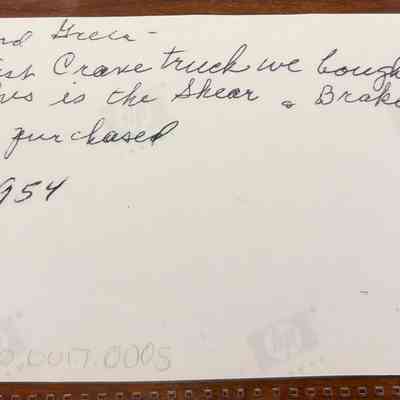 nd Green -
st Crane truck we bough
is is the Shear & Brake
purchased
954
0.0017.0005
hp
hp